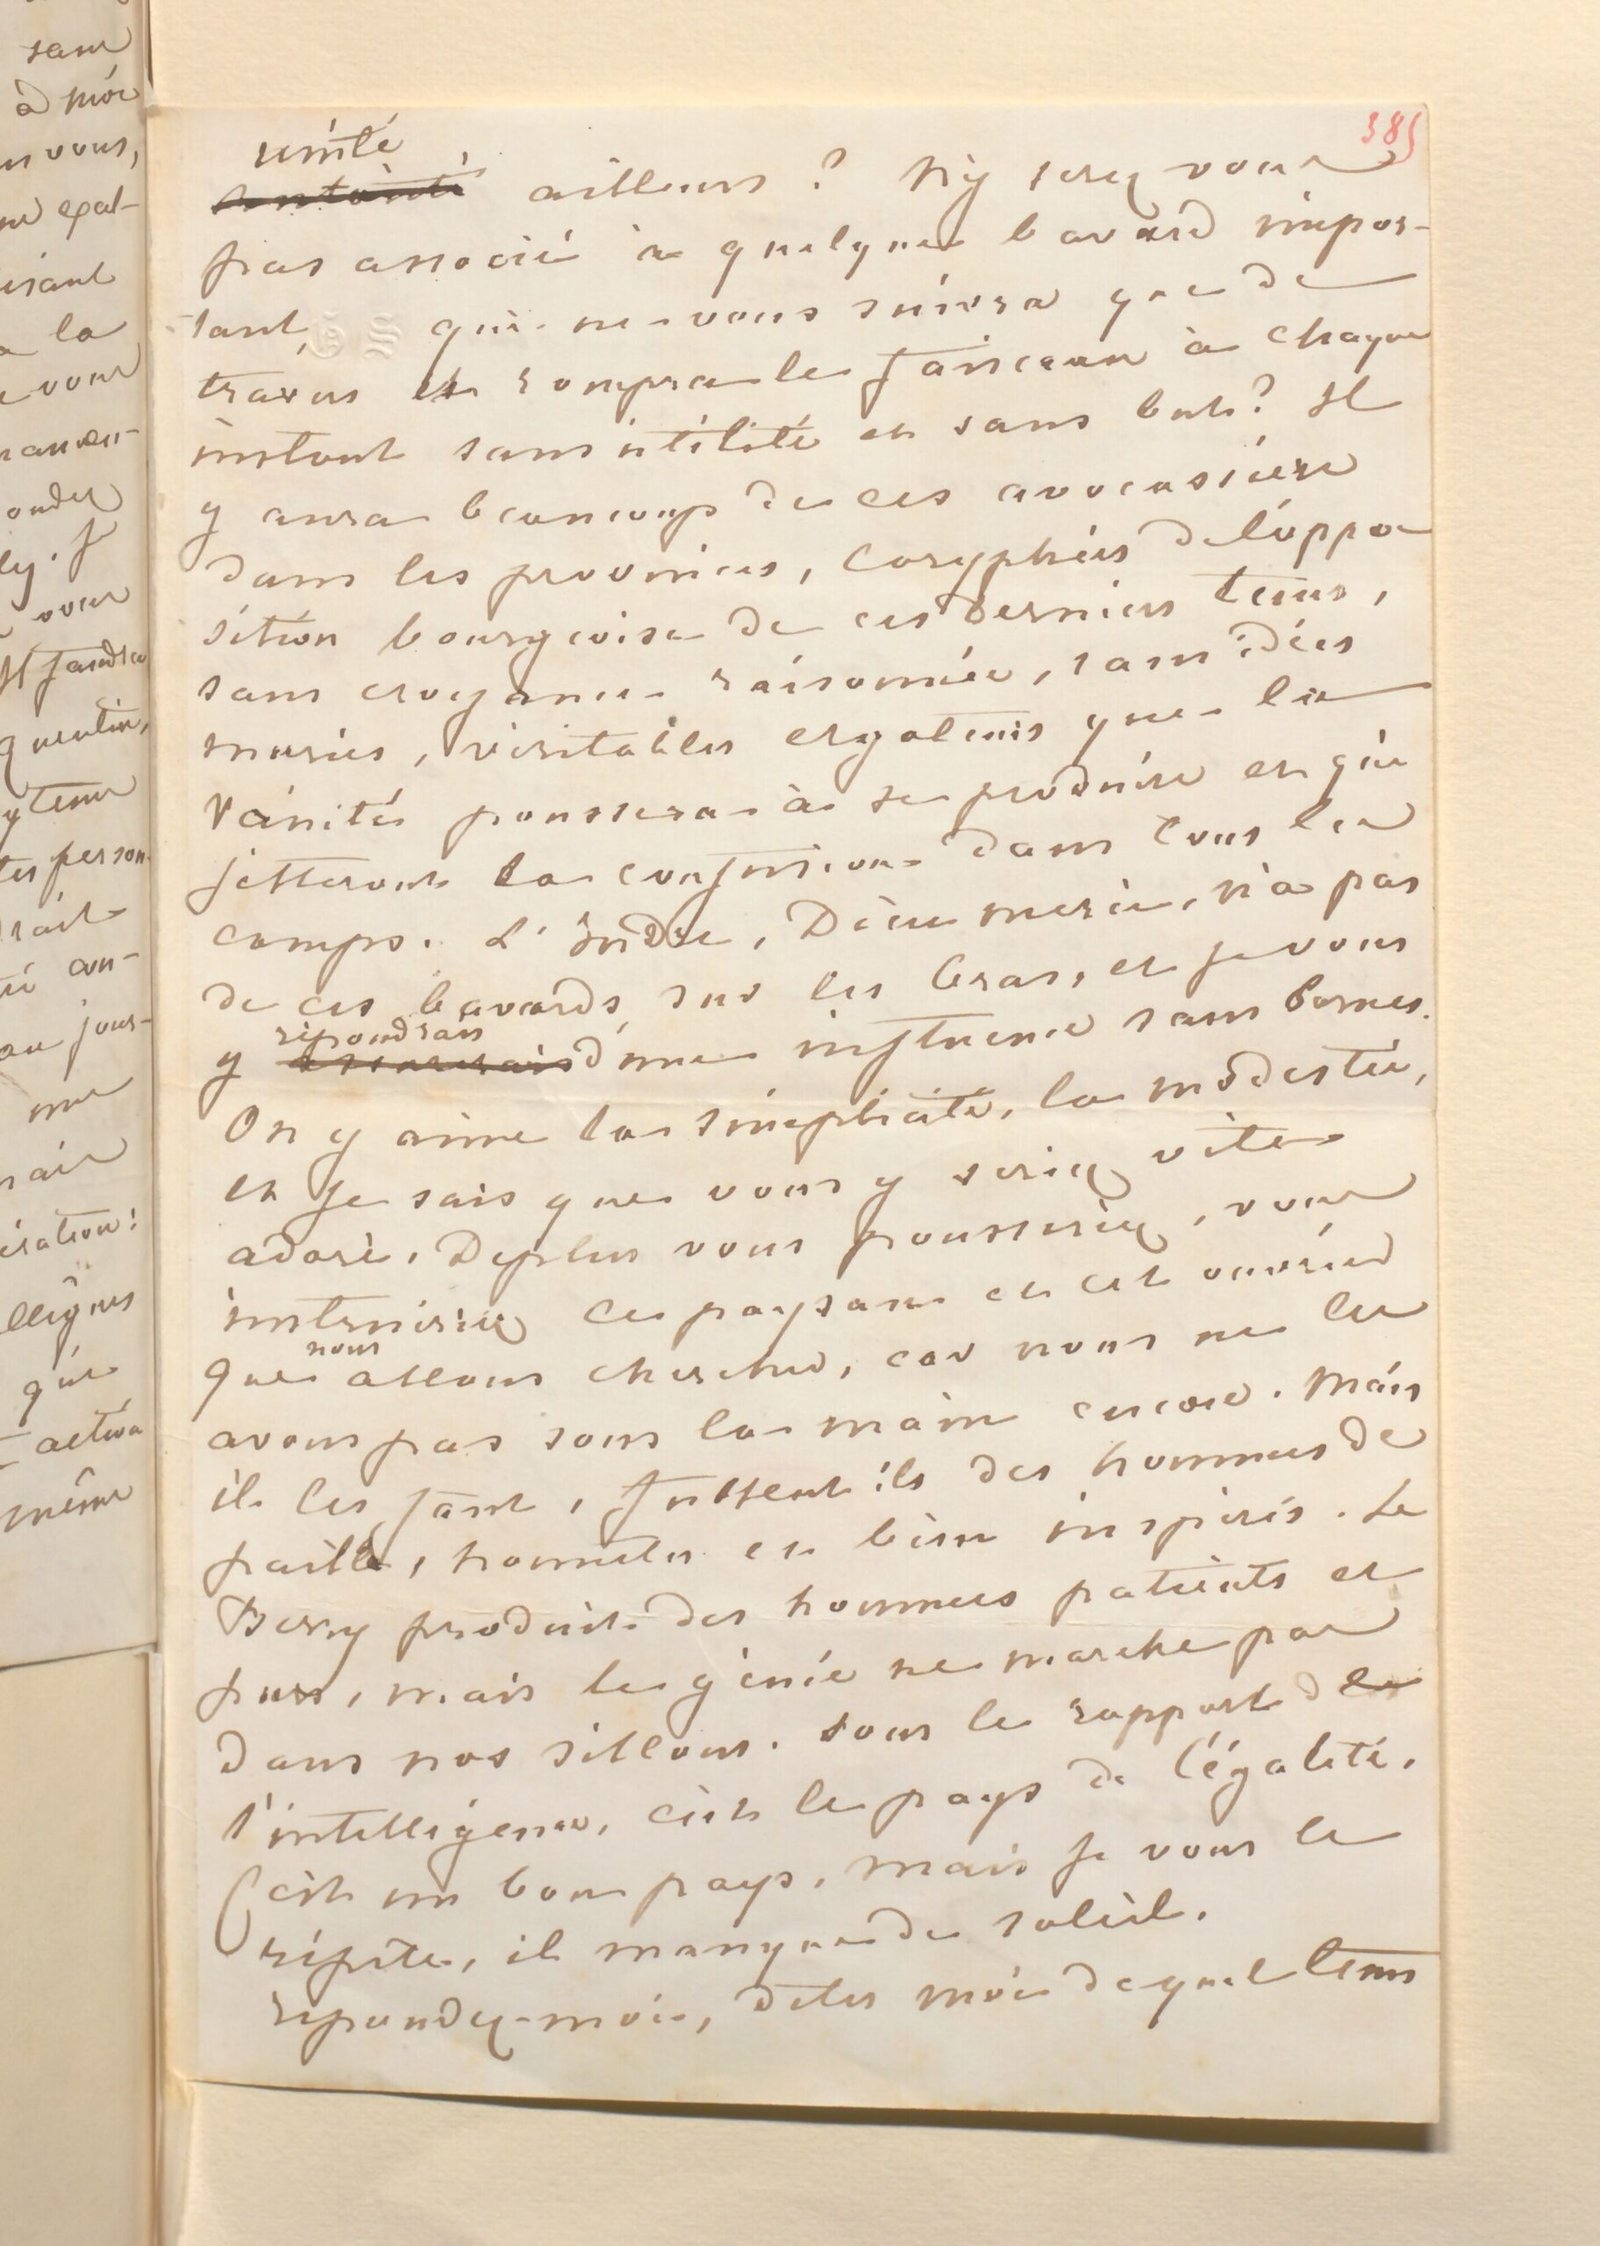 sans
à moi
vous,
exal-
isant
la
vous
onder
ley. Je
vous
Il faudra
Quentin,
ytems
tes person-
rait
con-
au jour-
me
ération:
lligues
qui
activa
même
385
unité
autorité ailleurs ? N'y serez vous
pas associé à quelque bavard impor-
tant, GS qui ne vous suivra que de
travers et rompra le faisceau à chaque
instant sans utilité et sans but ? Il
y aura beaucoup de ces avocassiers
dans les provinces, coryphées de l'oppo
sition bourgeoise de ces derniers tems,
sans croyance raisonnée, sans idées
muries, véritables ergoteurs que la
vanité poussera à se produire et qui
jetteront la confusion dans tous les
camps. L'Indre, Dieu merci, n'a pas
de ces bavards sur les bras, et je vous
répondrais
y assurerais d'une influence sans bornes.
On y aime la simplicité, la modestie,
et je sais que vous y seriez vite
adoré. Deplus vous pousseriez, vous
instruiriez ce paysan et cet ouvrier
nous
que allons chercher, car nous ne les
avons pas sous la main encore. Mais
il les faut, fussent ils des hommes de
paille, honnêtes et bien inspirés. Le
Berry produit des hommes patients et
purs, mais le génie ne marche pas
dans nos sillons. Sous le rapport de
l'intelligence, c'est le pays de l'égalité.
C'est un bon pays, mais je vous le
répète, il manque de soleil.
répondez-moi, dites moi de quel tems